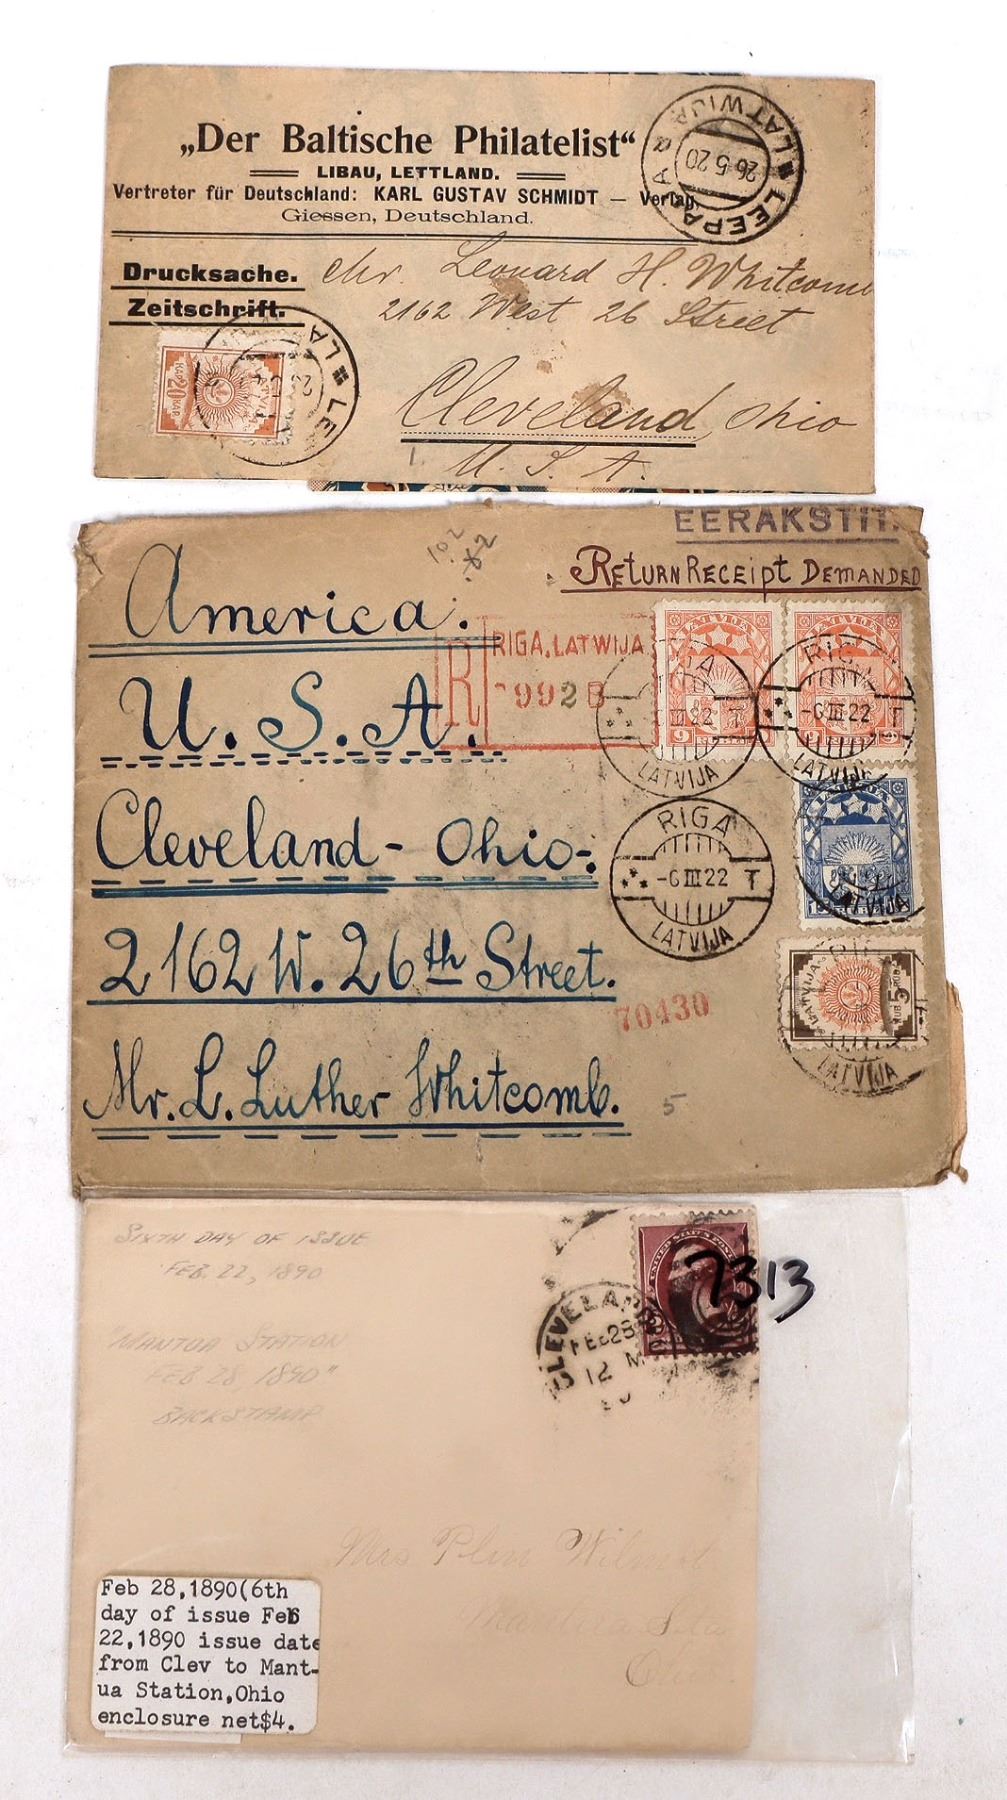 „Der Baltische Philatelist“
LIBAU, LETTLAND.
Vertreter für Deutschland: KARL GUSTAV SCHMIDT — Verlag,
Giessen, Deutschland.
LEEPAJA LATWIJA
26·5·20
Drucksache.
Zeitschrift.
Mr. Leonard H. Whitcomb
2162 West 26 Street
Cleveland, Ohio
U. S. A.
20 KAP
EERAKSTIT.
RETURN RECEIPT DEMANDED
102
America.
U. S. A.
R RIGA, LATWIJA
992 B
LATVIJA
9 RUBLI
RIGA
-6 III 22 T
LATVIJA
Cleveland - Ohio-:
RIGA
-6 III 22 T
LATVIJA
LATVIJA
2162 W. 26th Street.
70430
LATVIJA
5 RUB
LATVIJA
Mr. L. Luther Whitcomb.
5
SIXTH DAY OF ISSUE
FEB. 22, 1890
"MANTUA STATION
FEB 28, 1890"
BACKSTAMP
UNITED STATES POSTAGE
7313
CLEVELAND
FEB 28
12 M
Mrs Plin Wilmot
Mantua Sta
Ohio
Feb 28,1890(6th
day of issue Feb
22,1890 issue date
from Clev to Mant-
ua Station,Ohio
enclosure net$4.